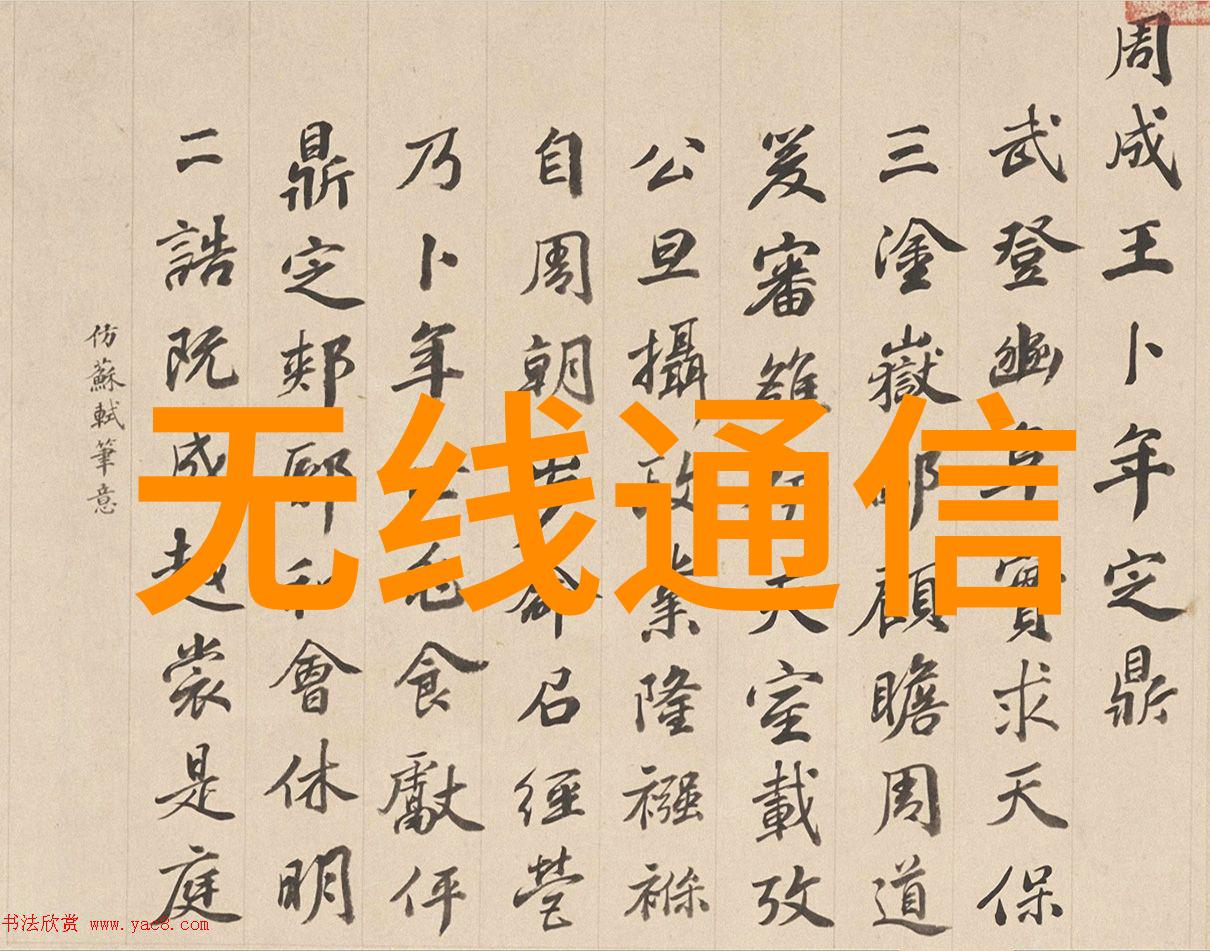 周成王卜年定鼎
武登豳阜實求天保
三塗嶽鄙顧瞻周道
爰審雒天室載攷
公旦攝政業隆襁褓
自周朝步命召經營
乃卜年龜食獻伻
鼎定郟鄏和會休明
二誥既成越裳是庭
仿蘇軾筆意
无线通信
书法欣赏 www.yac8.com